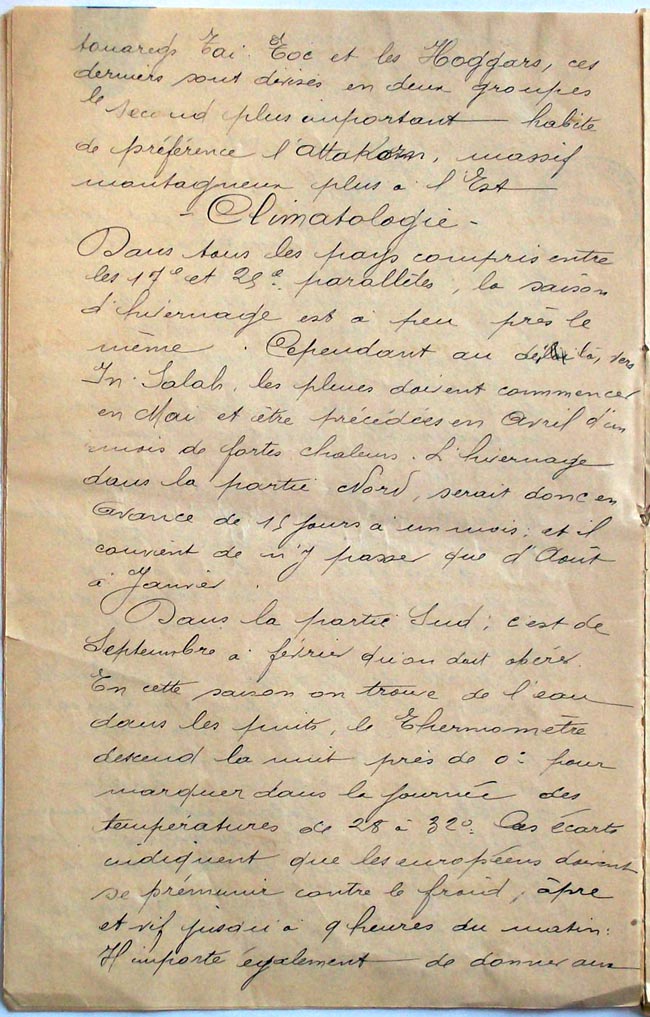 touaregs Taï Toc et les Hoggars, ces
derniers sont divisés en deux groupes
le second plus important habite
de préférence l'attakorn, massif
montagneux plus à l'Est
- Climatologie -
Dans tous les pays compris entre
les 17e et 25e parallèles, la saison
d'hivernage est à peu près le
même. Cependant au delà, vers
In-Salah, les pluies doivent commencer
en Mai et être précédées en Avril d'un
mois de fortes chaleurs. L'hivernage
dans la partie Nord, serait donc en
avance de 15 jours à un mois; et il
convient de n'y passer que d'Août
à Janvier.
Dans la partie Sud; c'est de
Septembre à février qu'on doit opérer.
En cette saison on trouve de l'eau
dans les puits, le Thermomètre
descend la nuit près de 0° pour
marquer dans la journée des
températures de 28 à 32°. Ces écarts
indiquent que les européens doivent
se prémunir contre le froid, âpre
et vif jusqu'à 9 heures du matin.
Il importe également de donner aux